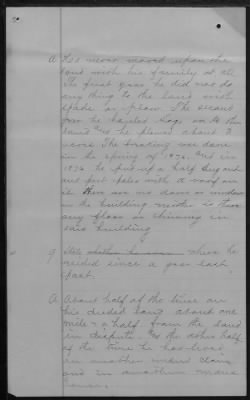 A. Has never moved upon the
land with his family at all.
The first year he did not do
any thing to the land with
spade or plow. The second
year he hauled logs on to the
land and he plowed about 2
acres. The breaking was done
in the spring of 1876. And in
1876 he put up a half dugout
and put poles with a roof on
it. There are no doors or windows
in the building neither is there
any floor or chimney in
said building
Q. State whether heever where he
resided since a year last
past.
A. About half of the time on
his deeded land about one
mile & a half from the land
in dispute. And the other half
of the time he has lived
on another mans claim
and in another mans
house.